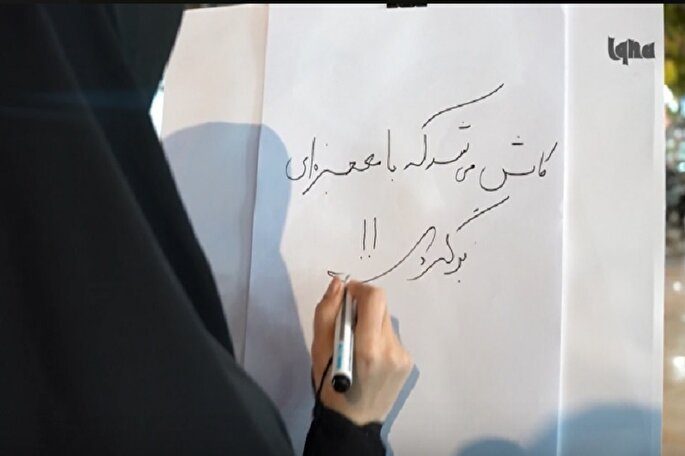 Iqna
کاش می‌شد که با معجزه‌ای
برگردی !!